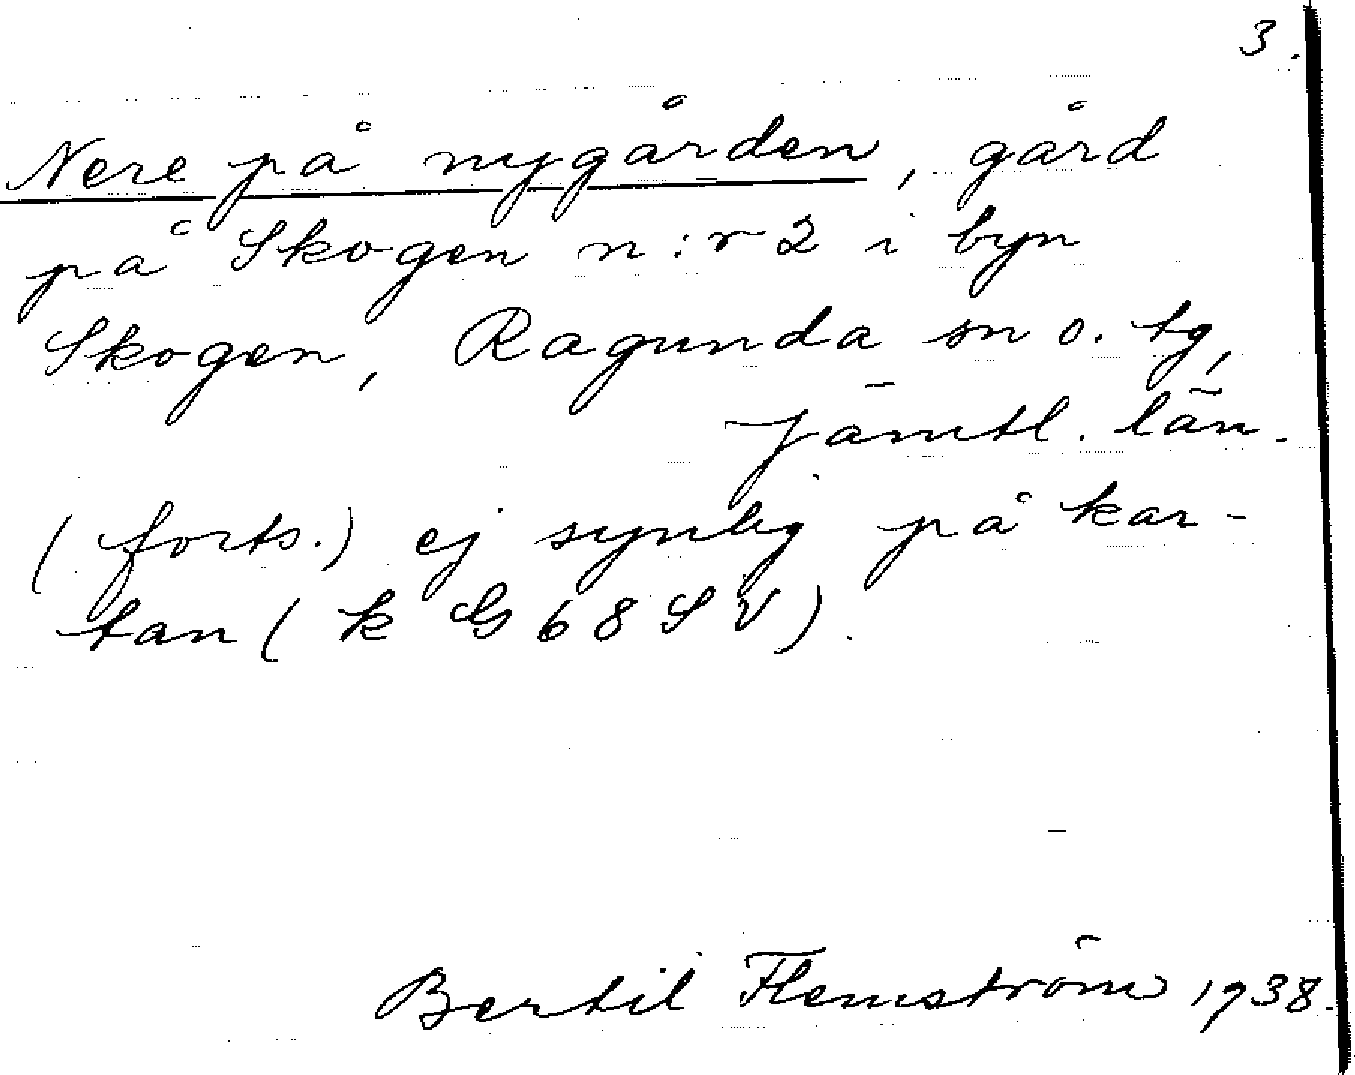 3.
Nere på nygården, gård
på Skogen n:r 2 i byn
Skogen, Ragunda sn o. tg,
Jämtl. län.
(forts.) ej synlig på kar-
tan (k G 68 S V).
Bertil Flemström 1938.